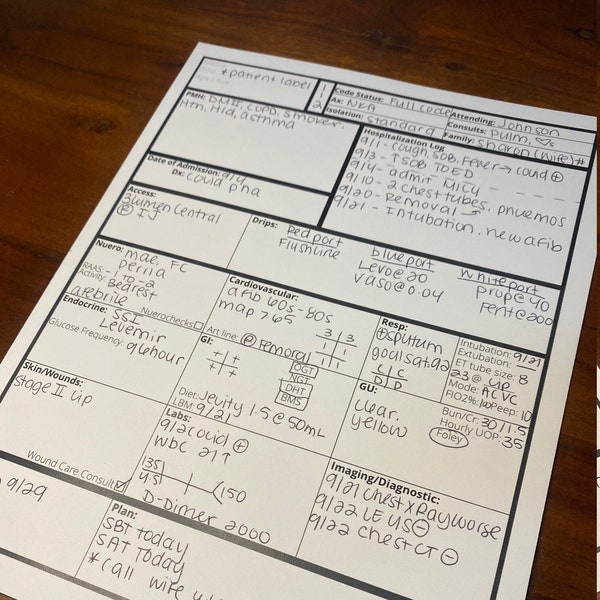 * patient label
Code Status: Full code
Ax: NKA
Attending: Johnson
Isolation: Standard
Consults: pulm, ♡s
Family: Sharon (wife) #
PMH: DM II, COPD, smoker,
HTN, Hld, asthma
Hospitalization Log
9/1 - cough, SOB, Fever → covid ⊕
9/3 - ↑SOB TO ED
9/4 - admit MICU
9/10 - 2 chest tubes, pnuemos
9/20 - Removal
9/21 - Intubation, new afib
Date of Admission: 9/4
Dx: covid pna
Access:
3 lumen central
Ⓡ IJ
Drips:
Red port
Flushline
blue port
Levo@20
Vaso@0.04
White port
prop@40
Fent@200
Nuero: mae, FC
perrla
RAAS: -1 to -2
Activity: Bedrest
afebrile
Nuerochecks
Cardiovascular:
afib 60s-80s
map >65
Art line: Ⓡ Femoral
3 | 3
1 | 1
1 | 1
Resp:
⊕sputum
goal sat: 92
C | C
D | D
Intubation: 9/21
Extubation:
ET tube size: 8
23 @ Lip
Mode: ACVC
FIO2%: 100 Peep: 10
Endocrine: SSI
Levemir
Glucose Frequency: q6hour
GI:
+ | +
+ | +
OGT
NGT
DHT
BMS
Diet: Jevity 1.5 @ 50mL
LBM: 9/21
GU:
clear,
yellow
Bun/Cr: 30/1.5
Foley
Hourly UOP: 35
Skin/Wounds:
Stage II Lip
Wound Care Consult
Labs:
9/2 covid ⊕
WBC 21↑
135
4.5
150
D-Dimer 2000
Imaging/Diagnostic:
9/21 Chest Xray worse
9/22 LE US ⊖
9/22 chest CT ⊖
9/29
Plan:
SBT today
SAT today
* call wife